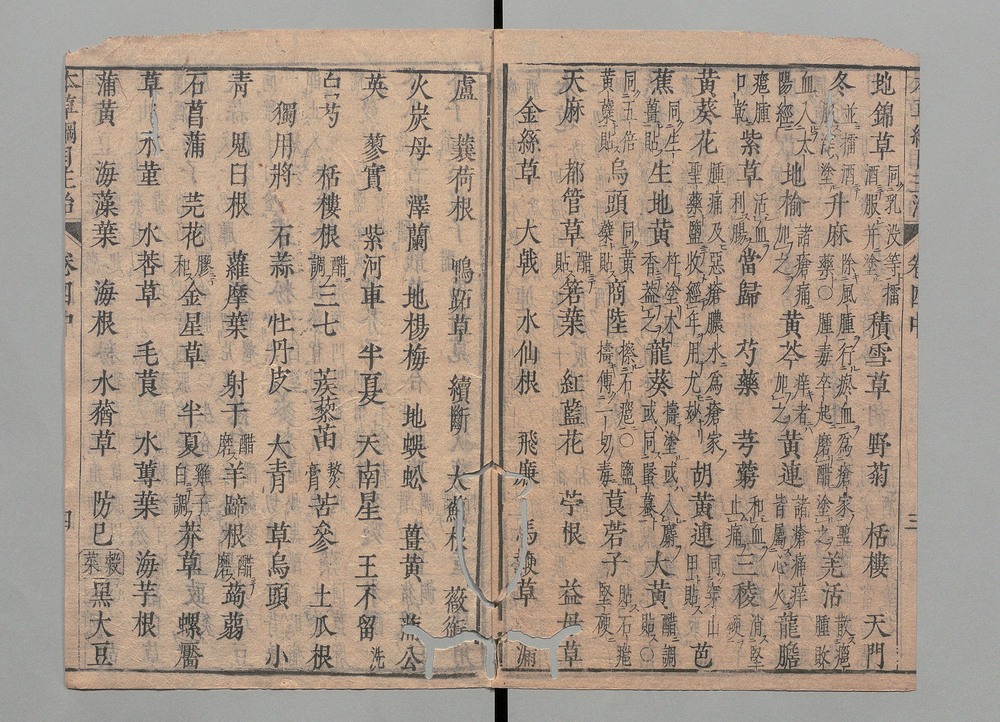 地錦草 同乳没等擂酒服并塗 積雪草 野菊 栝樓 天門
冬 並擂酒服渣塗 升麻 除風腫行瘀血爲瘡家聖藥〇腫毒卒起磨醋塗之 羌活 散癰腫敗
血入太陽經 地榆 諸瘡痛加之 黄芩 痒者加之 黄連 諸瘡痛痒皆屬心火 龍膽
癰腫口乾 紫草 活血利腸 當歸 芍藥 芎藭 和血止痛 三稜 消堅硬
黄葵花 腫痛及惡瘡膿水爲瘡家聖藥鹽收經年用尤妙 胡黄連 同穿山甲貼 芭
蕉 同生薑貼 生地黄 杵塗木香葢之 龍葵 擣塗或入麝或同蝦蟇 大黄 醋調貼〇
同五倍黄蘗貼 烏頭 同黄蘗貼 商陸 擦石癰〇鹽擣傅一切毒 莨菪子 貼石癰堅硬
天麻 都管草 醋貼 箬葉 紅藍花 苧根 益母草
金絲草 大戟 水仙根 飛廉 馬鞭草 漏
盧 蘘荷根 鴨跖草 續斷 大薊根 薇銜
火炭母 澤蘭 地楊梅 地蜈蚣 薑黄 蒲公
英 蓼實 紫河車 半夏 天南星 王不留 洗
白芍 栝樓根 醋調 三七 蒺藜苗 熬膏 苦參 土瓜根
獨用將 石蒜 牡丹皮 大青 草烏頭 小
青 鬼臼根 蘿摩葉 射干 醋磨 羊蹄根 醋磨 蒟蒻
石菖蒲 芫花 膠和 金星草 半夏 雞子白調 莽草 螺黶
草 水堇 水莕草 毛茛 水蓴葉 海芋根
蒲黄 海藻葉 海根 水藮草 防巳 穀菜 黑大豆
本草綱目主治 卷四中 三
本草綱目主治 卷四中 四